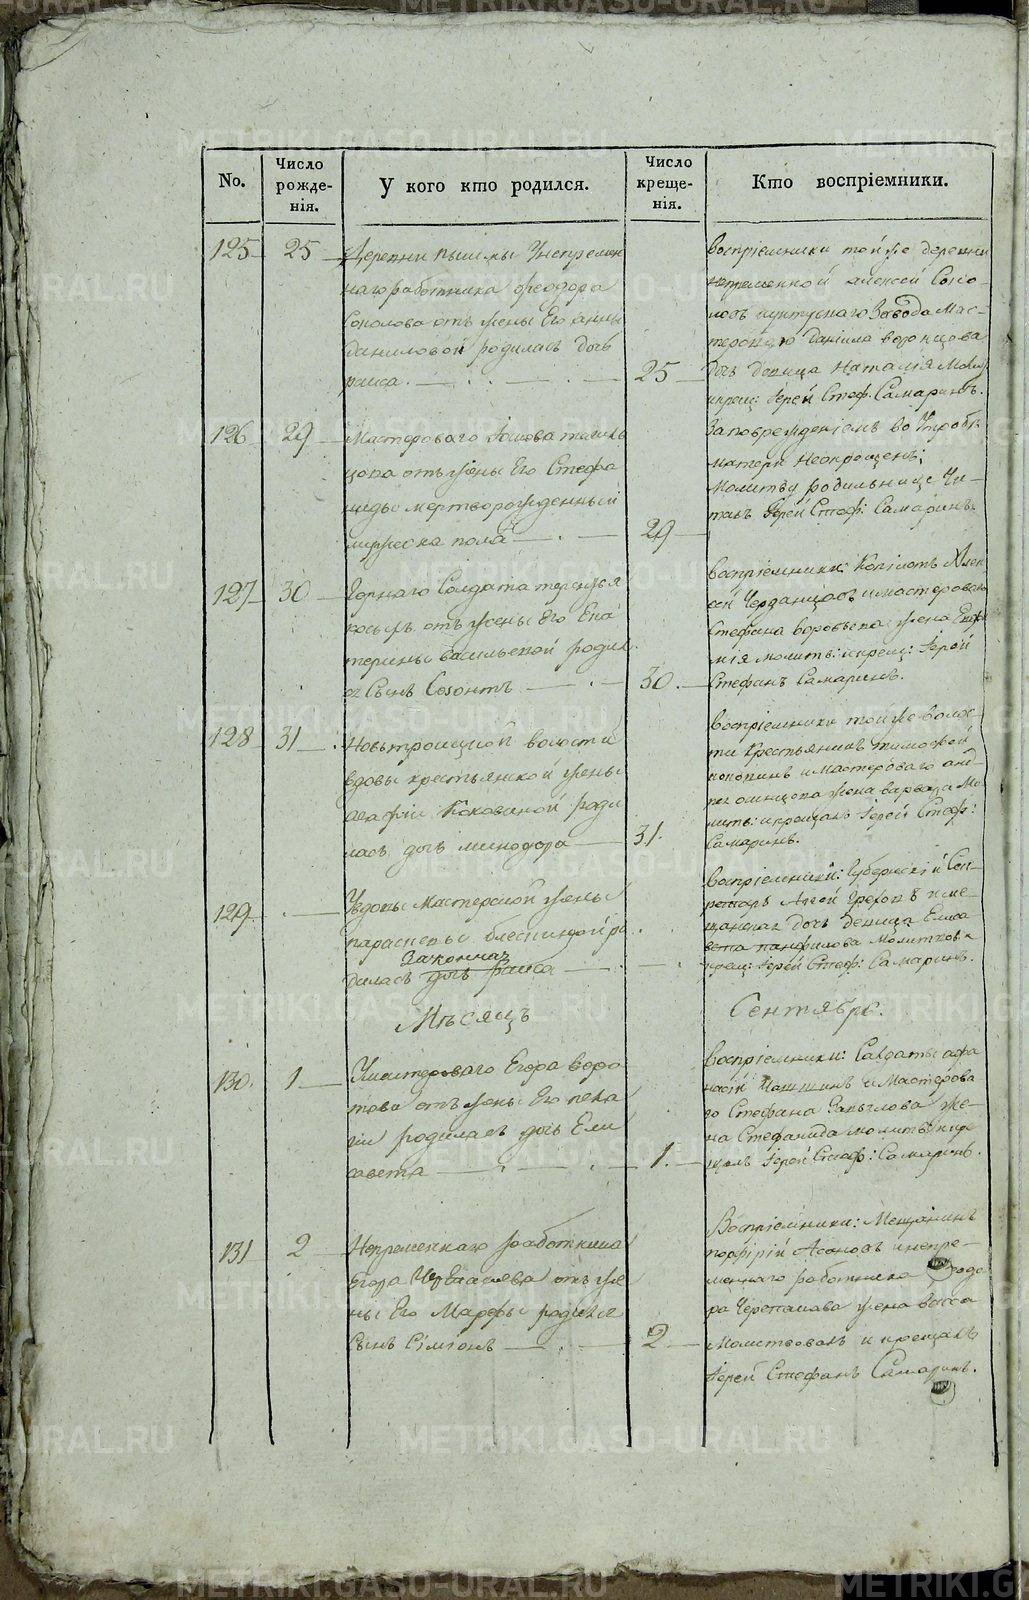 No.
Число рожде-нія.
У кого кто родился.
Число креще-нія.
Кто воспріемники.
125
25
Деревни пышмы Унепремен
наго работника Феодора
Соколова отъ жены Его анны
даниловой родилась дочь
раиса
25
воспріемники той же деревни
непременной алексей Соко-
ловъ нуптускаго Завода Мас-
тероваго данiила воронцова
дочь девица Наталія Молит
икрещ: Іерей Стеф. Самаринъ.
126
29
Мастероваго
отъ жены Его Стефа
ниды мертворожденный
мужеска пола
29
За повреждениемъ во Утробѣ
матери Неокрещенъ;
Молитву родильнице Чи-
талъ Іерей Стеф: Самаринъ
127
30
Горнаго Солдата терентья
отъ жены Его Ека
терины васильевой родил
ся Сынъ Созонтъ
30.
воспріемники: Копіистъ Алек
сей Черданцовъ имастероваго
Стефана воробьева жена Евфи
мія молитв: икрещ: Іерей
Стефанъ Самаринъ.
128
31
Новотроицкой волости
вдовы крестьянской жены
агафіи Коковиной роди
лась дочь минодора
31.
воспріемники тойже волос-
ти Крестьянинъ тимофей
имастероваго анд-
жена варвара Мо
литв: икрещалъ Іерей Стеф:
Самаринъ.
129
Увдовы мастерской жены
параскевы ро
Законная
дилась дочь раиса
воспріемники: Губернскій Сек-
ретарь имѣ-
щанская дочь девица Елиса
вета панфилова Молитвов
крещ: Іерей Стеф: Самаринъ.
Мѣсяцъ
Сентябрь.
130.
1
Умастероваго Егора воро
това отъ жены Его пела
гіи родилась дочь Ели
савета
1.
воспріемники: Солдатъ афа
насій Чашинъ и Мастерова
го Стефана жe-
на Стефанида молитв: икре
щалъ Іерей Стеф: Самаринъ.
131
2
Непременнаго работника
Егора отъ же
ны Его Марфы родился
Сынъ Сімiонъ
2
Воспріемники: Мещанинъ
порфірій инепре-
меннаго работника
ра Черепанова жена васса
Молитвовалъ и крещалъ
Іерей Стефанъ Самаринъ.
METRIKI.GASO-URAL.RU